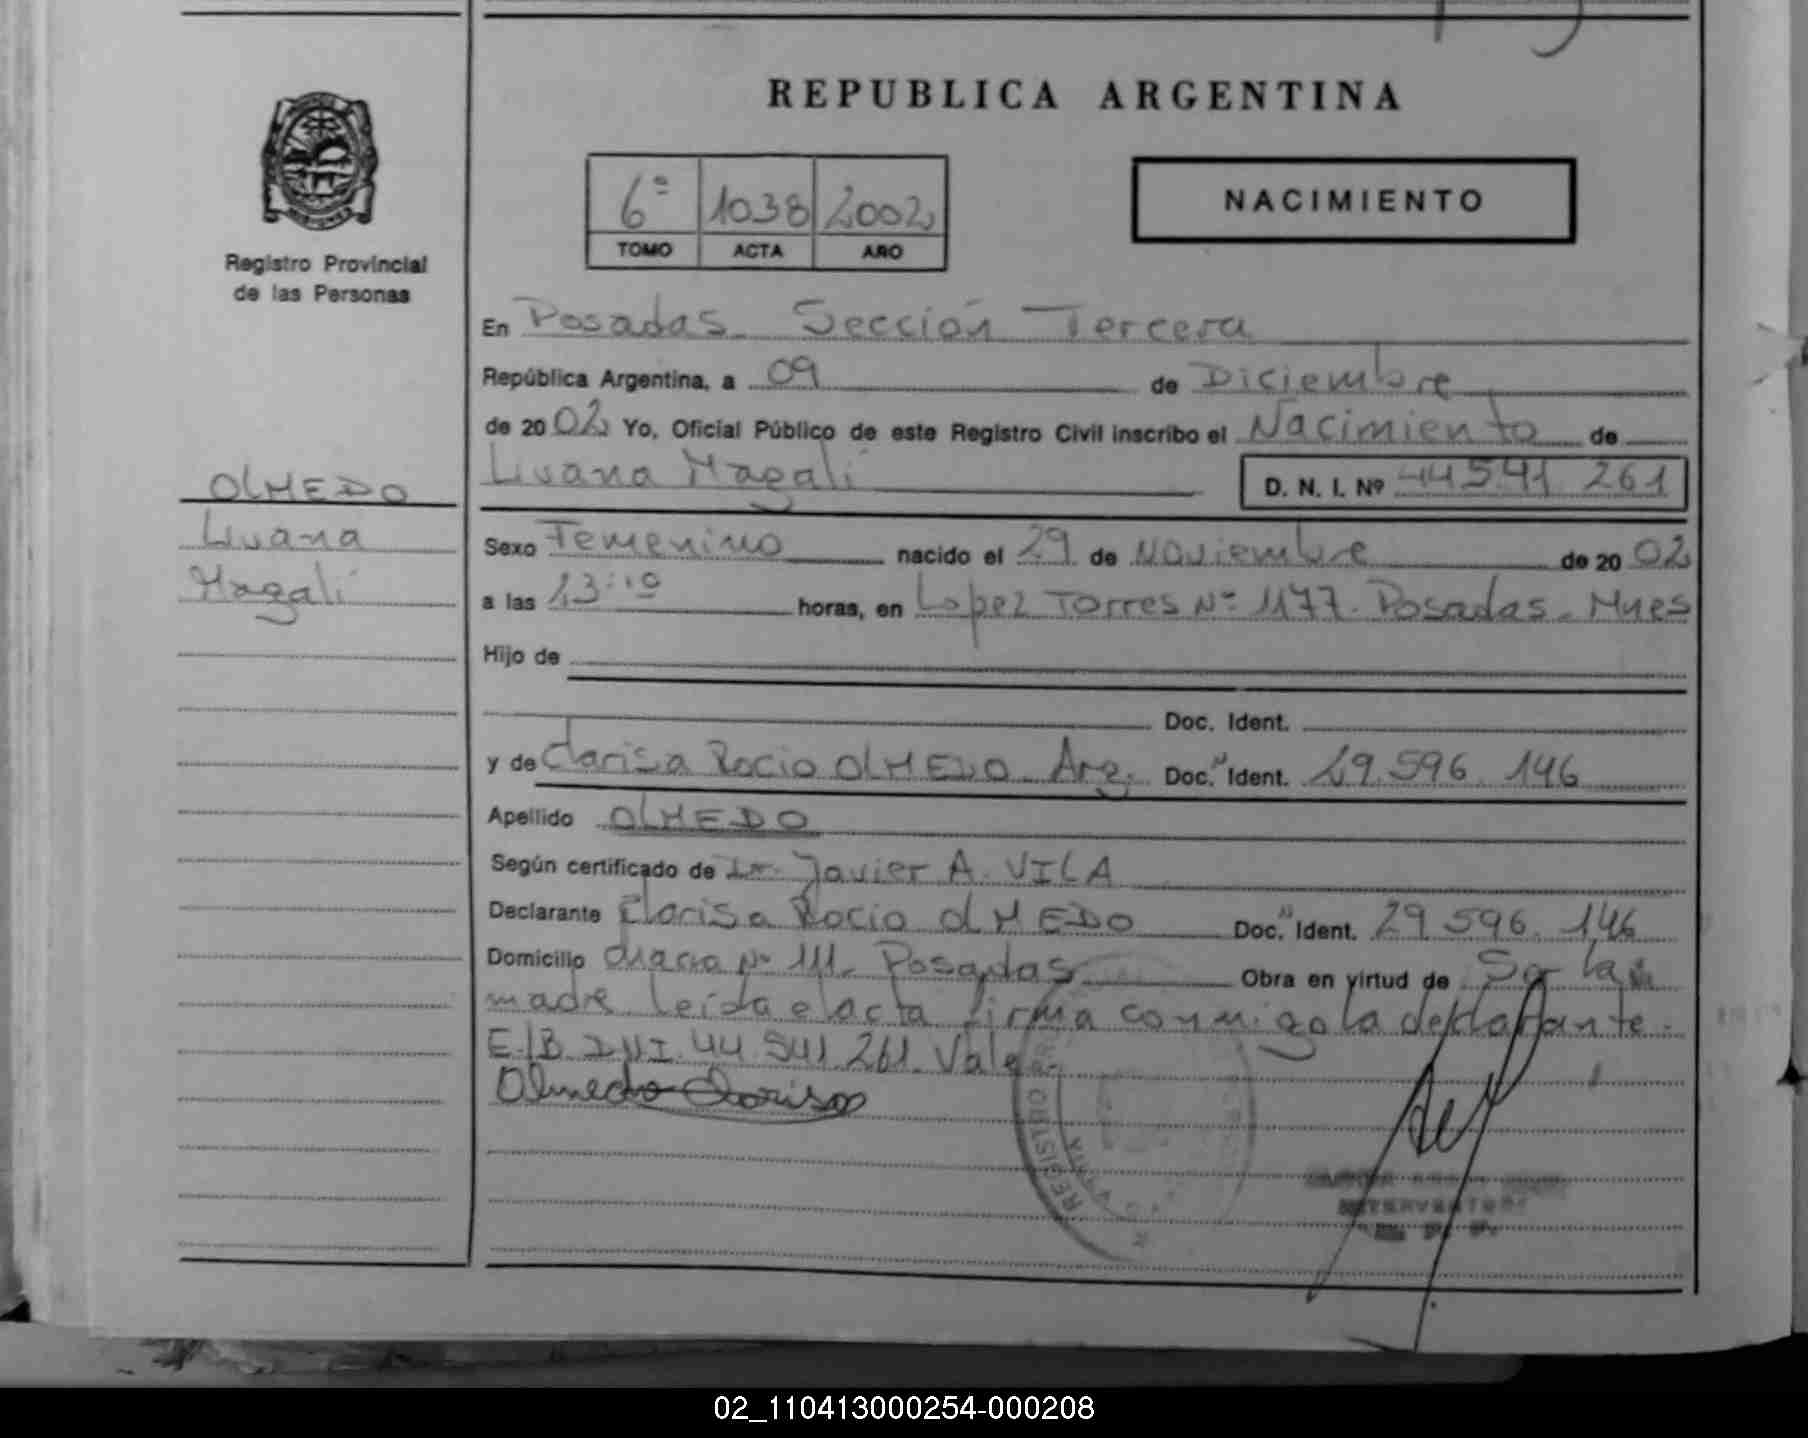 REPUBLICA ARGENTINA
6º 1038 2002
TOMO ACTA AÑO
NACIMIENTO
Registro Provincial
de las Personas
OLMEDO
Luana
Magalí
En Posadas - Sección Tercera
República Argentina, a 09 de Diciembre
de 2002 Yo, Oficial Público de este Registro Civil inscribo el Nacimiento de
Luana Magalí D. N. I. Nº 44541 261
Sexo Femenino nacido el 29 de Noviembre de 20 02
a las 13:10 horas, en Lopez Torres Nº 1177. Posadas - Mnes
Hijo de
Doc. Ident.
y de Clarisa Rocio OLMEDO - Arg. Doc. Ident. 29.596.146
Apellido OLMEDO
Según certificado de Dr. Javier A. VILA
Declarante Clarisa Rocio OLMEDO Doc. Ident. 29 596. 146
Domicilio Nº 111 - Posadas Obra en virtud de Ser la
madre leída el acta firma conmigo la declarante.
E/B D.N.I. 44.541.261. Vale.
Olmedo Clarisa
REGISTRO
INTERVENTORA
02_110413000254-000208